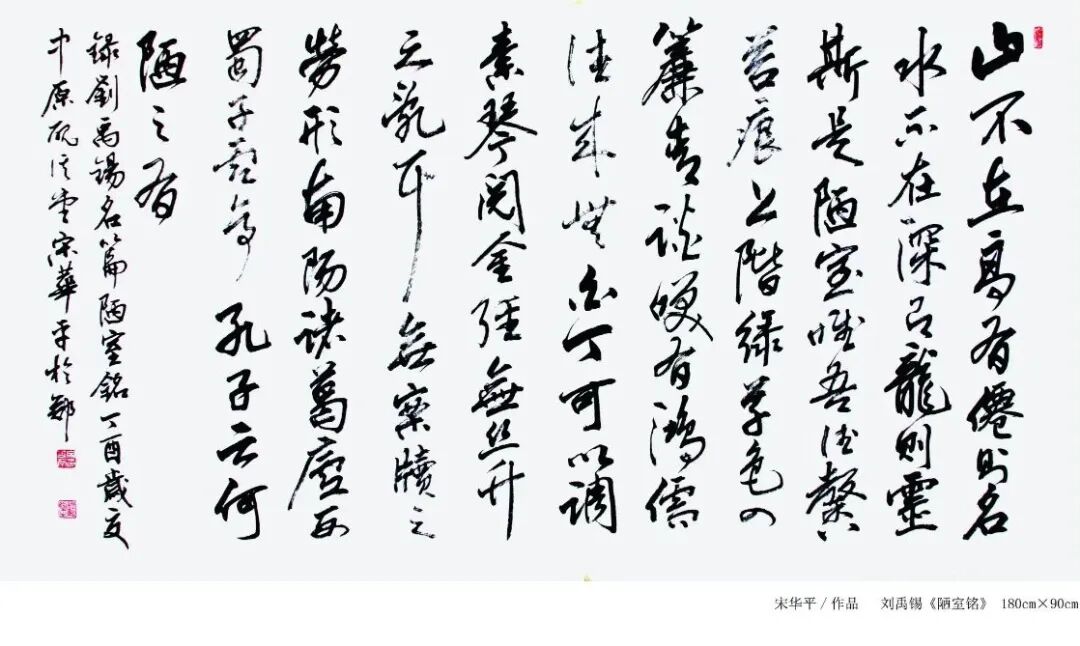 山不在高有僊則名
水不在深有龍則靈
斯是陋室惟吾德馨
苔痕上階綠草色入
簾青談笑有鴻儒
往来無白丁可以調
素琴閲金經無丝竹
之亂耳無案牘之
勞形南陽諸葛廬西
蜀子雲亭孔子云何
陋之有
録劉禹錫名篇陋室銘丁酉歲夏
中原宋華平於鄭
宋华平/作品 刘禹锡《陋室铭》 180cm×90cm